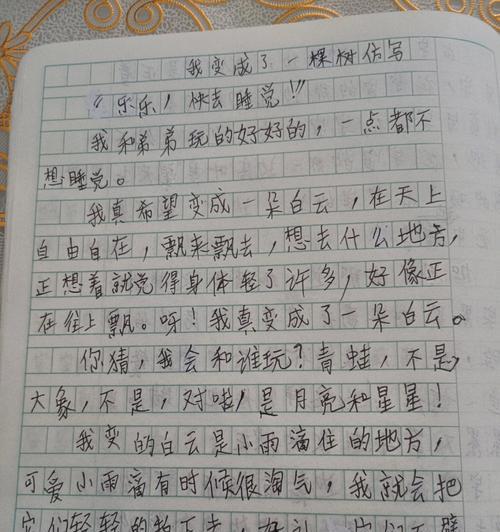 我变成了一棵树仿写
“乐乐！快去睡觉！”
我和弟弟玩的好好的，一点都不
想睡觉。
我真希望变成一朵白云，在天上
自由自在，飘来飘去，想去什么地方，
正想着就觉得身体轻了许多，好像正
在往上飘。呀！我真变成了一朵白云。
你猜，我会和谁玩？青蛙，不是，
大象，不是，对啦！是月亮和星星！
我变的白云是小雨滴住的地方，
可爱小雨滴有时候很淘气，我就会把
它们轻轻的